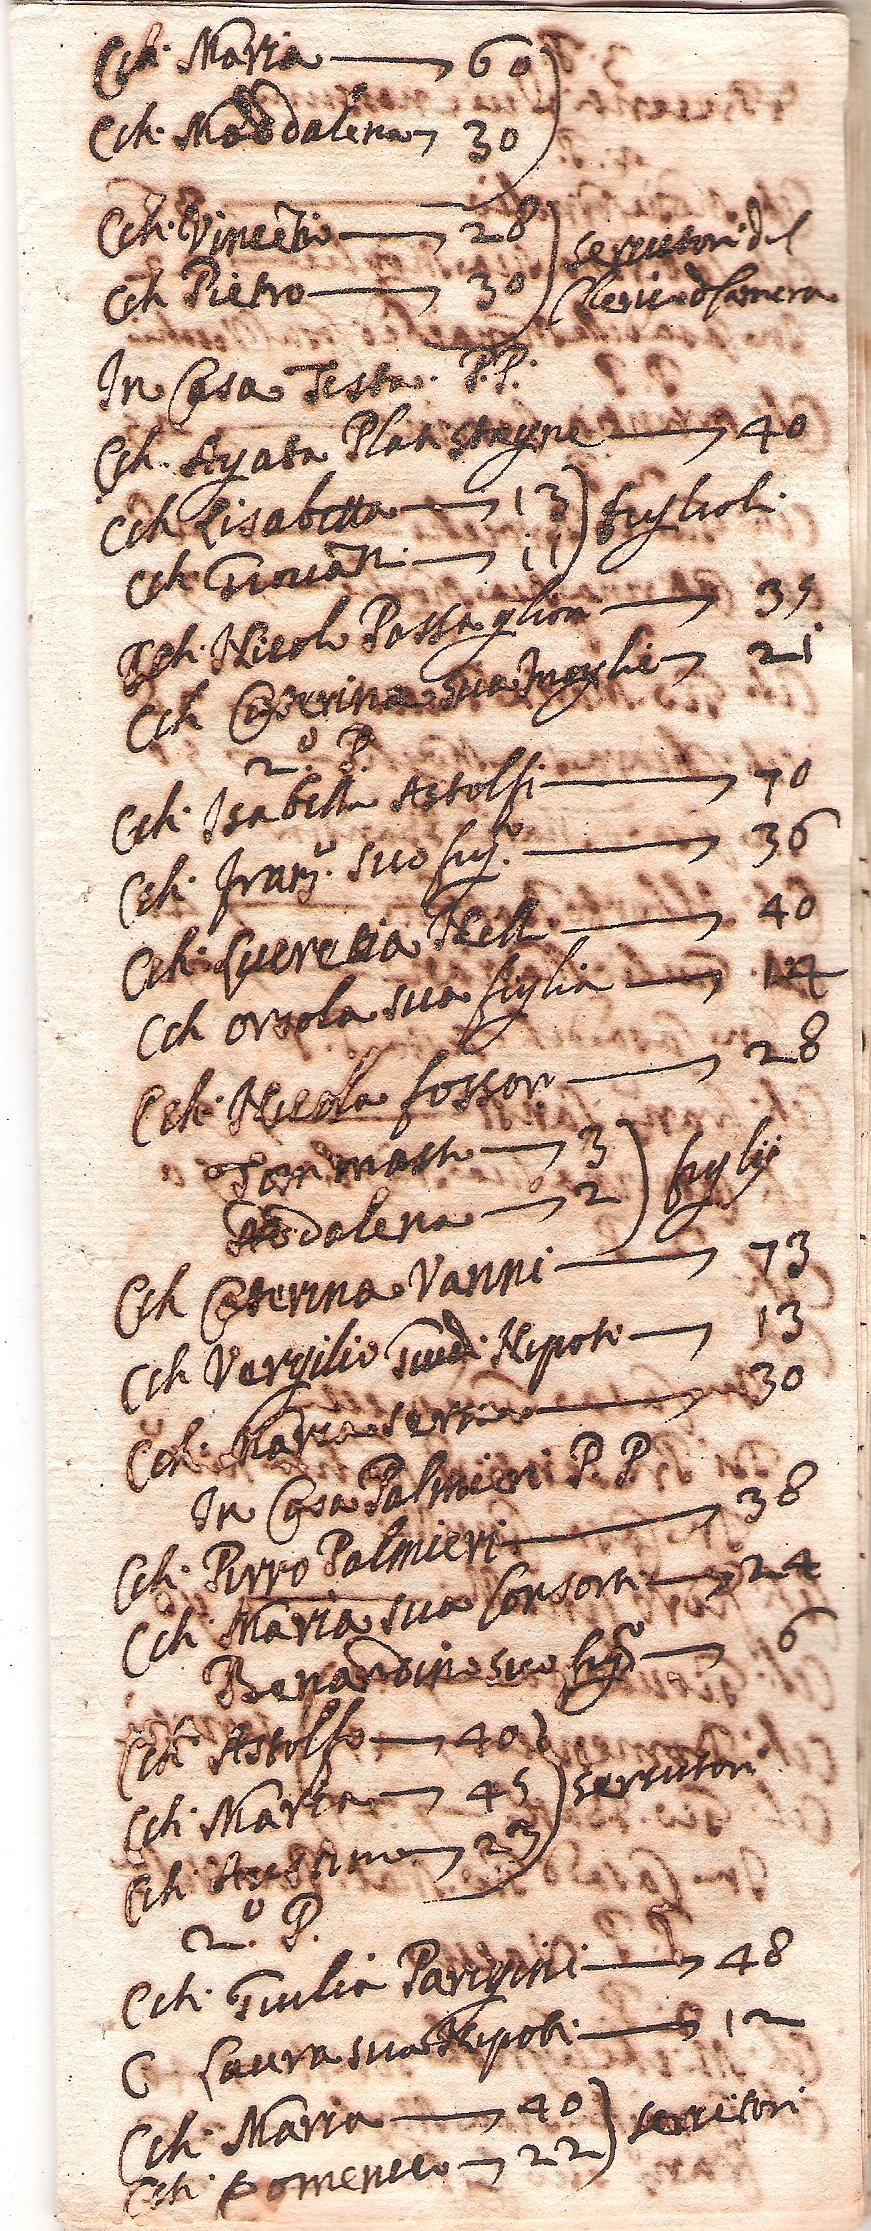 Cch. Maria — 60
Cch. Maddalena 30
Cch. Vincentio — 28
Cch Pietro — 30
servitori del
Chierico d Camera
In Casa Testa. P.P.
Cch. Agata — 40
Cch Lisabetta — 13
figlioli
Cch Giovan — 11
Cch. Nicolo Passaglion — 35
Cch Caterina sua moglie 21
2.º P.
Cch. Isabella Astolfi — 70
Cch. Franc.º suo fig.º — 36
Cch. Lucretia — 40
Cch Orsola sua figlia — 14
Cch. Nicola fosson — 28
Tommaso — 3
Madalena — 2
figlij
Cch Caterina Vanni — 73
Cch Vergilio Nipote — 13
Cch. Maria serva — 30
In Casa Palmieri P.P.
Cch. Pirro Palmieri — 38
Cch. Maria sua Consorte — 24
Bernardino suo fig.º — 6
Cch. Astolfo — 40
Cch. Maria — 45
servitori
Cch. — 23
2.º P.
Cch. Giulia Parigini — 48
C Laura sua Nipote — 12
Cch. Maria — 40
servitori
Cch. Domenico — 22